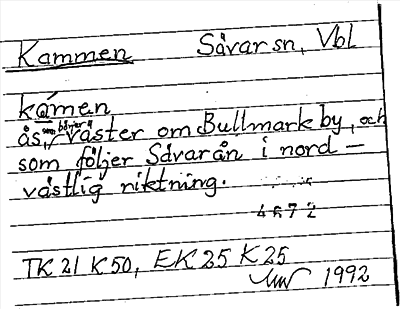 Kammen Sävar sn, Vbl
kámen
ås, som börjar väster om Bullmark by, och
som följer Sävarån i nord-
västlig riktning.
4672
TK 21 K 50, EK 25 K 25
1992